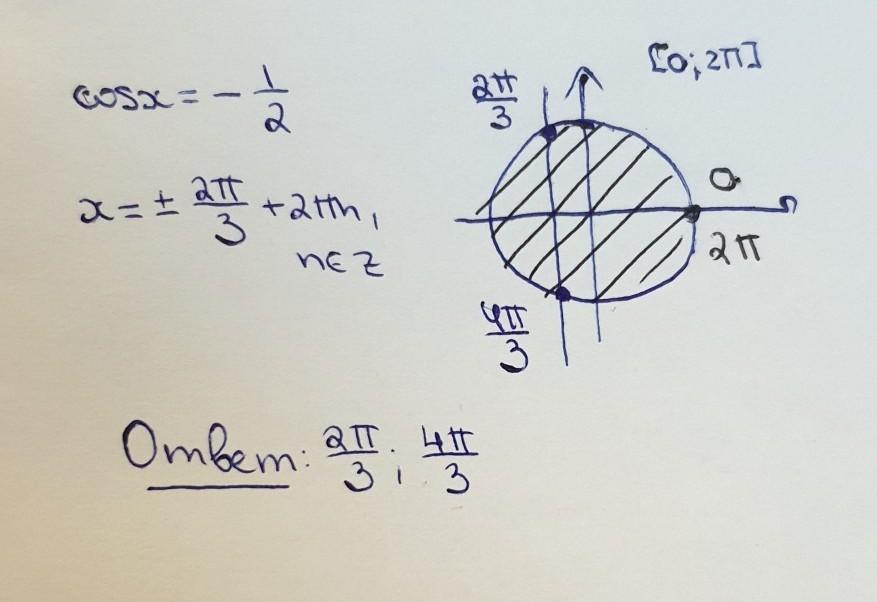 cosx = - 1/2
x = ± 2π/3 + 2πn,
n∈Z
[0; 2π]
2π/3
0
2π
4π/3
Ответ: 2π/3; 4π/3